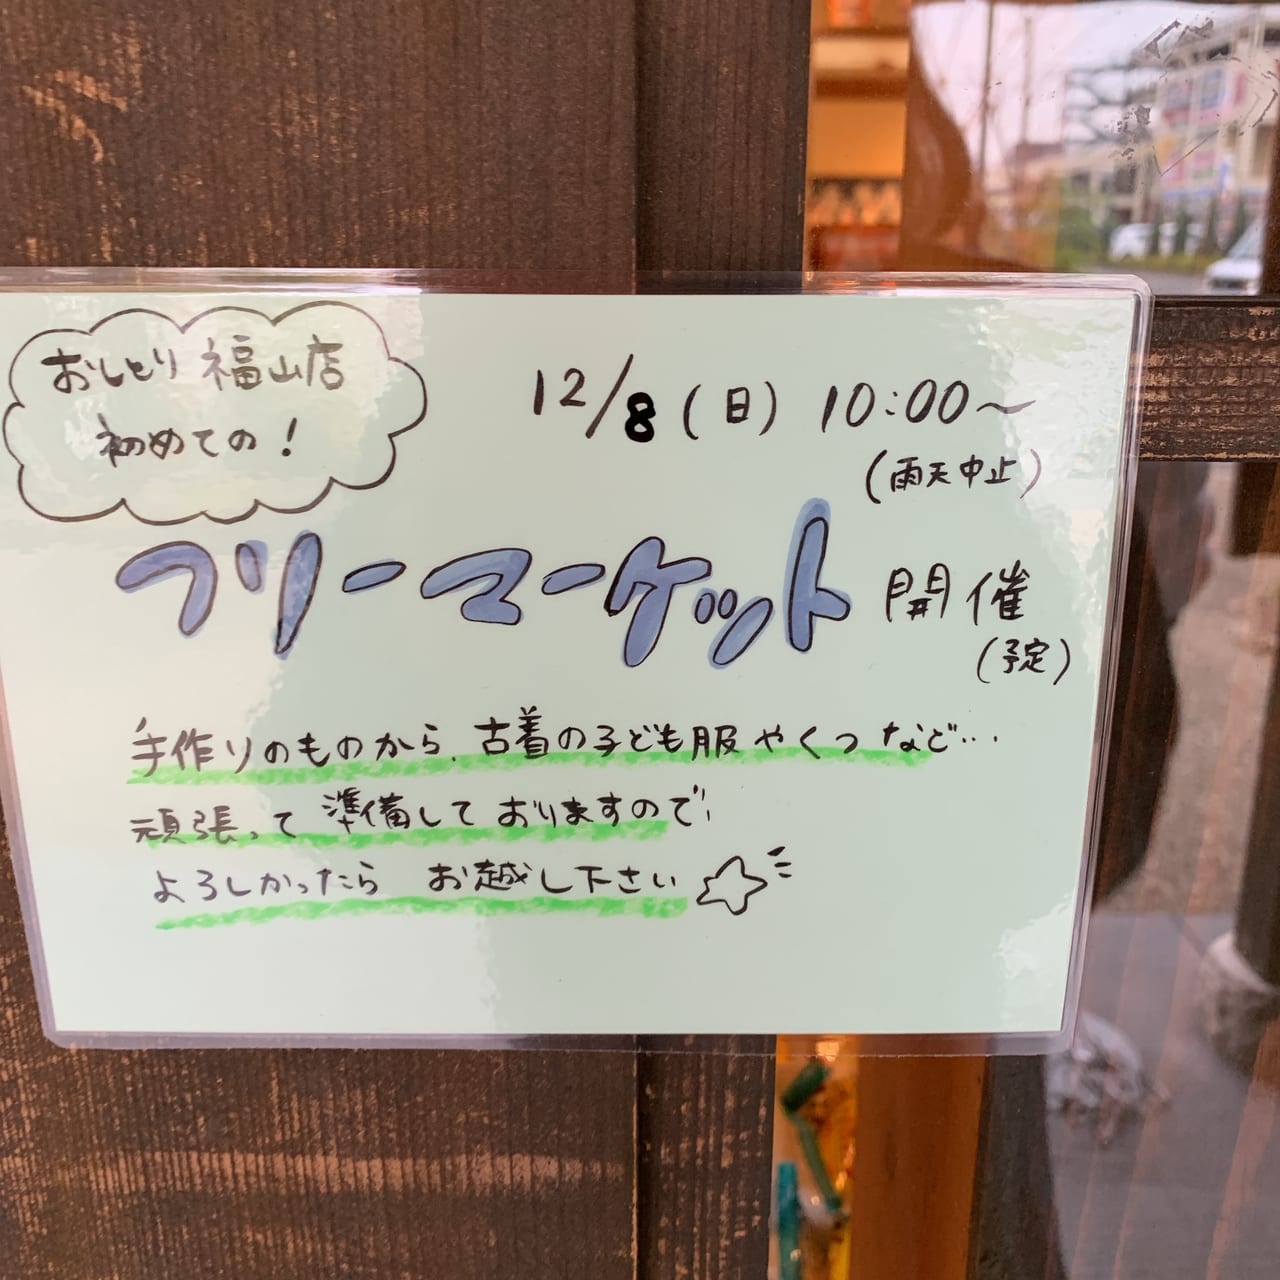 おしとり 福山店
初めての！
12/8（日）10:00〜
（雨天中止）
フリーマーケット 開催
（予定）
手作りのものから、古着の子ども服やくつなど…
頑張って準備しておりますので、
よろしかったら お越し下さい☆